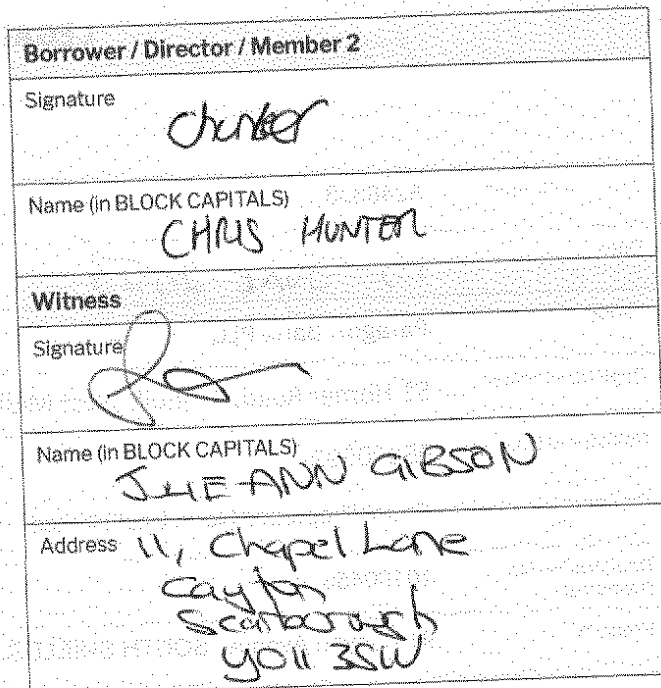 Borrower / Director / Member 2
Signature
Chunter
Name (in BLOCK CAPITALS)
CHRIS HUNTER
Witness
Signature
Name (in BLOCK CAPITALS)
JULIE-ANN GIBSON
Address 11, Chapel Lane
Cayton
Scarborough
YO11 3SW